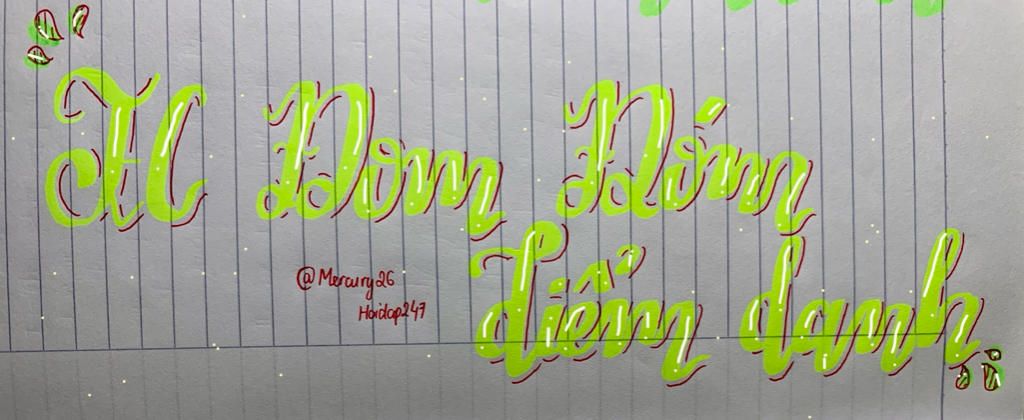 FC Đom Đóm
điểm danh
@Mercury26
Hoidap247